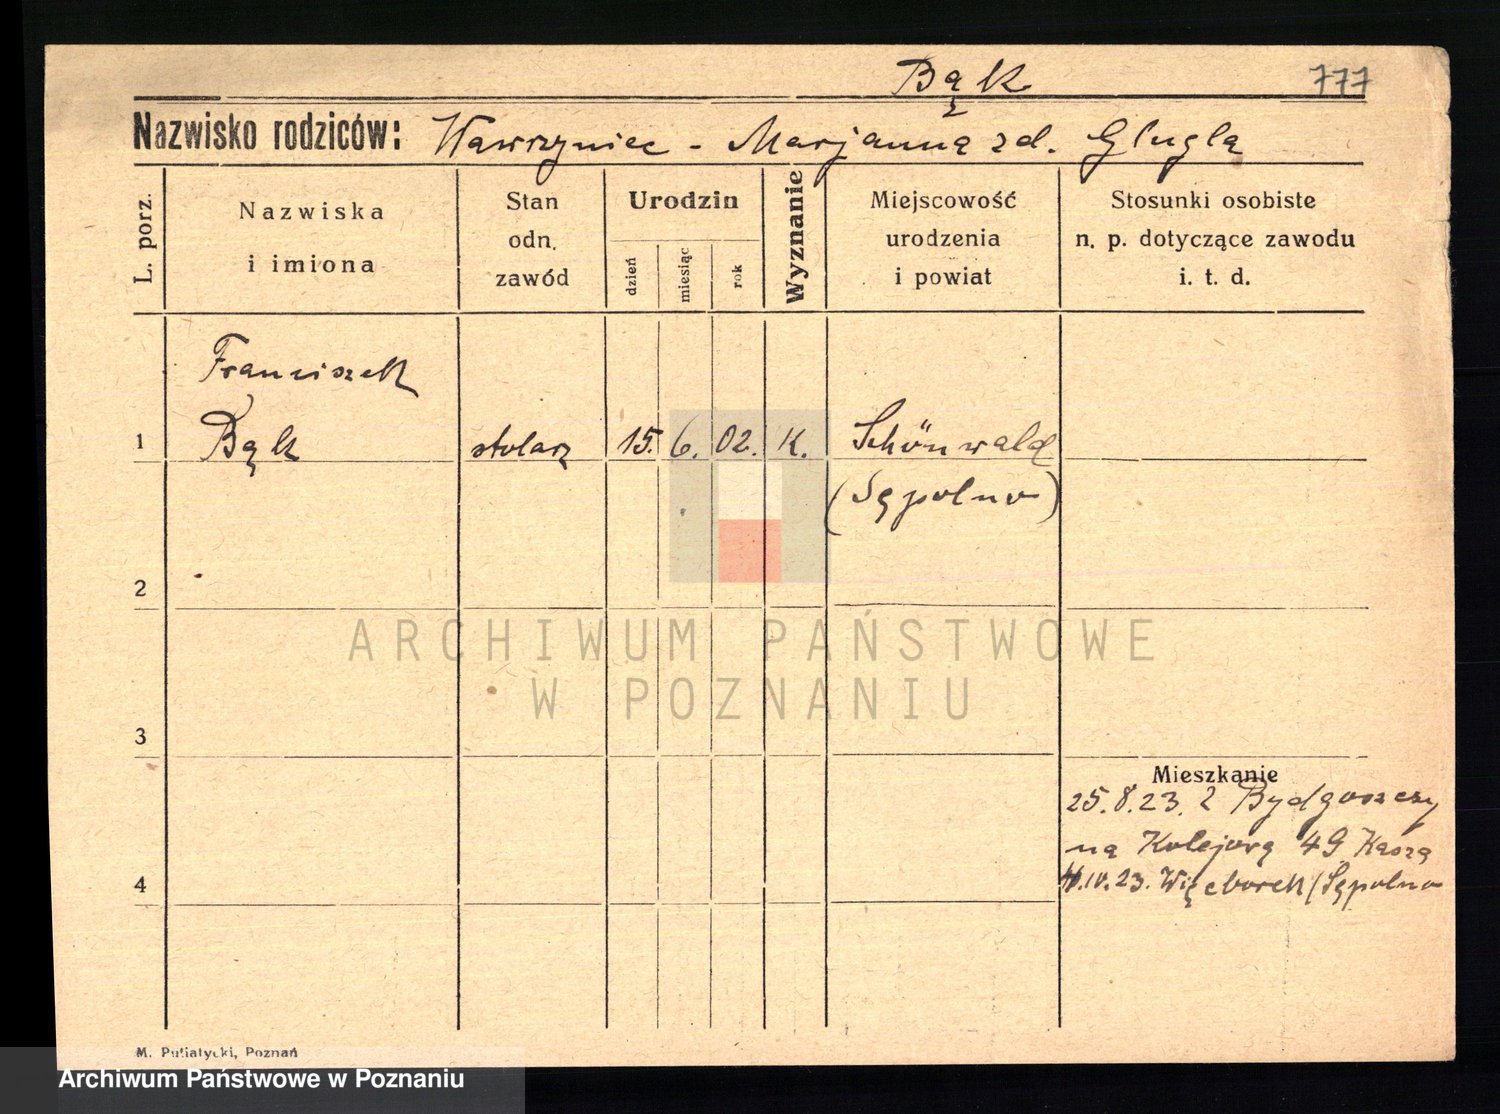 Bąk
777
Nazwisko rodziców: Wawrzyniec - Marjanna zd. Glugla
L. porz.
Nazwiska
i imiona
Stan
odn.
zawód
Urodzin
dzień
miesiąc
rok
Wyznanie
Miejscowość
urodzenia
i powiat
Stosunki osobiste
n. p. dotyczące zawodu
i. t. d.
Franciszek
1 Bąk stolarz 15. 6. 02. K. Schönwald
(Sępolno)
2
3
Mieszkanie
25.8.23. z Bydgoszczy
na Kolejową 49
4
IV. 23. Więcbork (Sępolno
M. Putiatycki, Poznań
ARCHIWUM PAŃSTWOWE
W POZNANIU
Archiwum Państwowe w Poznaniu